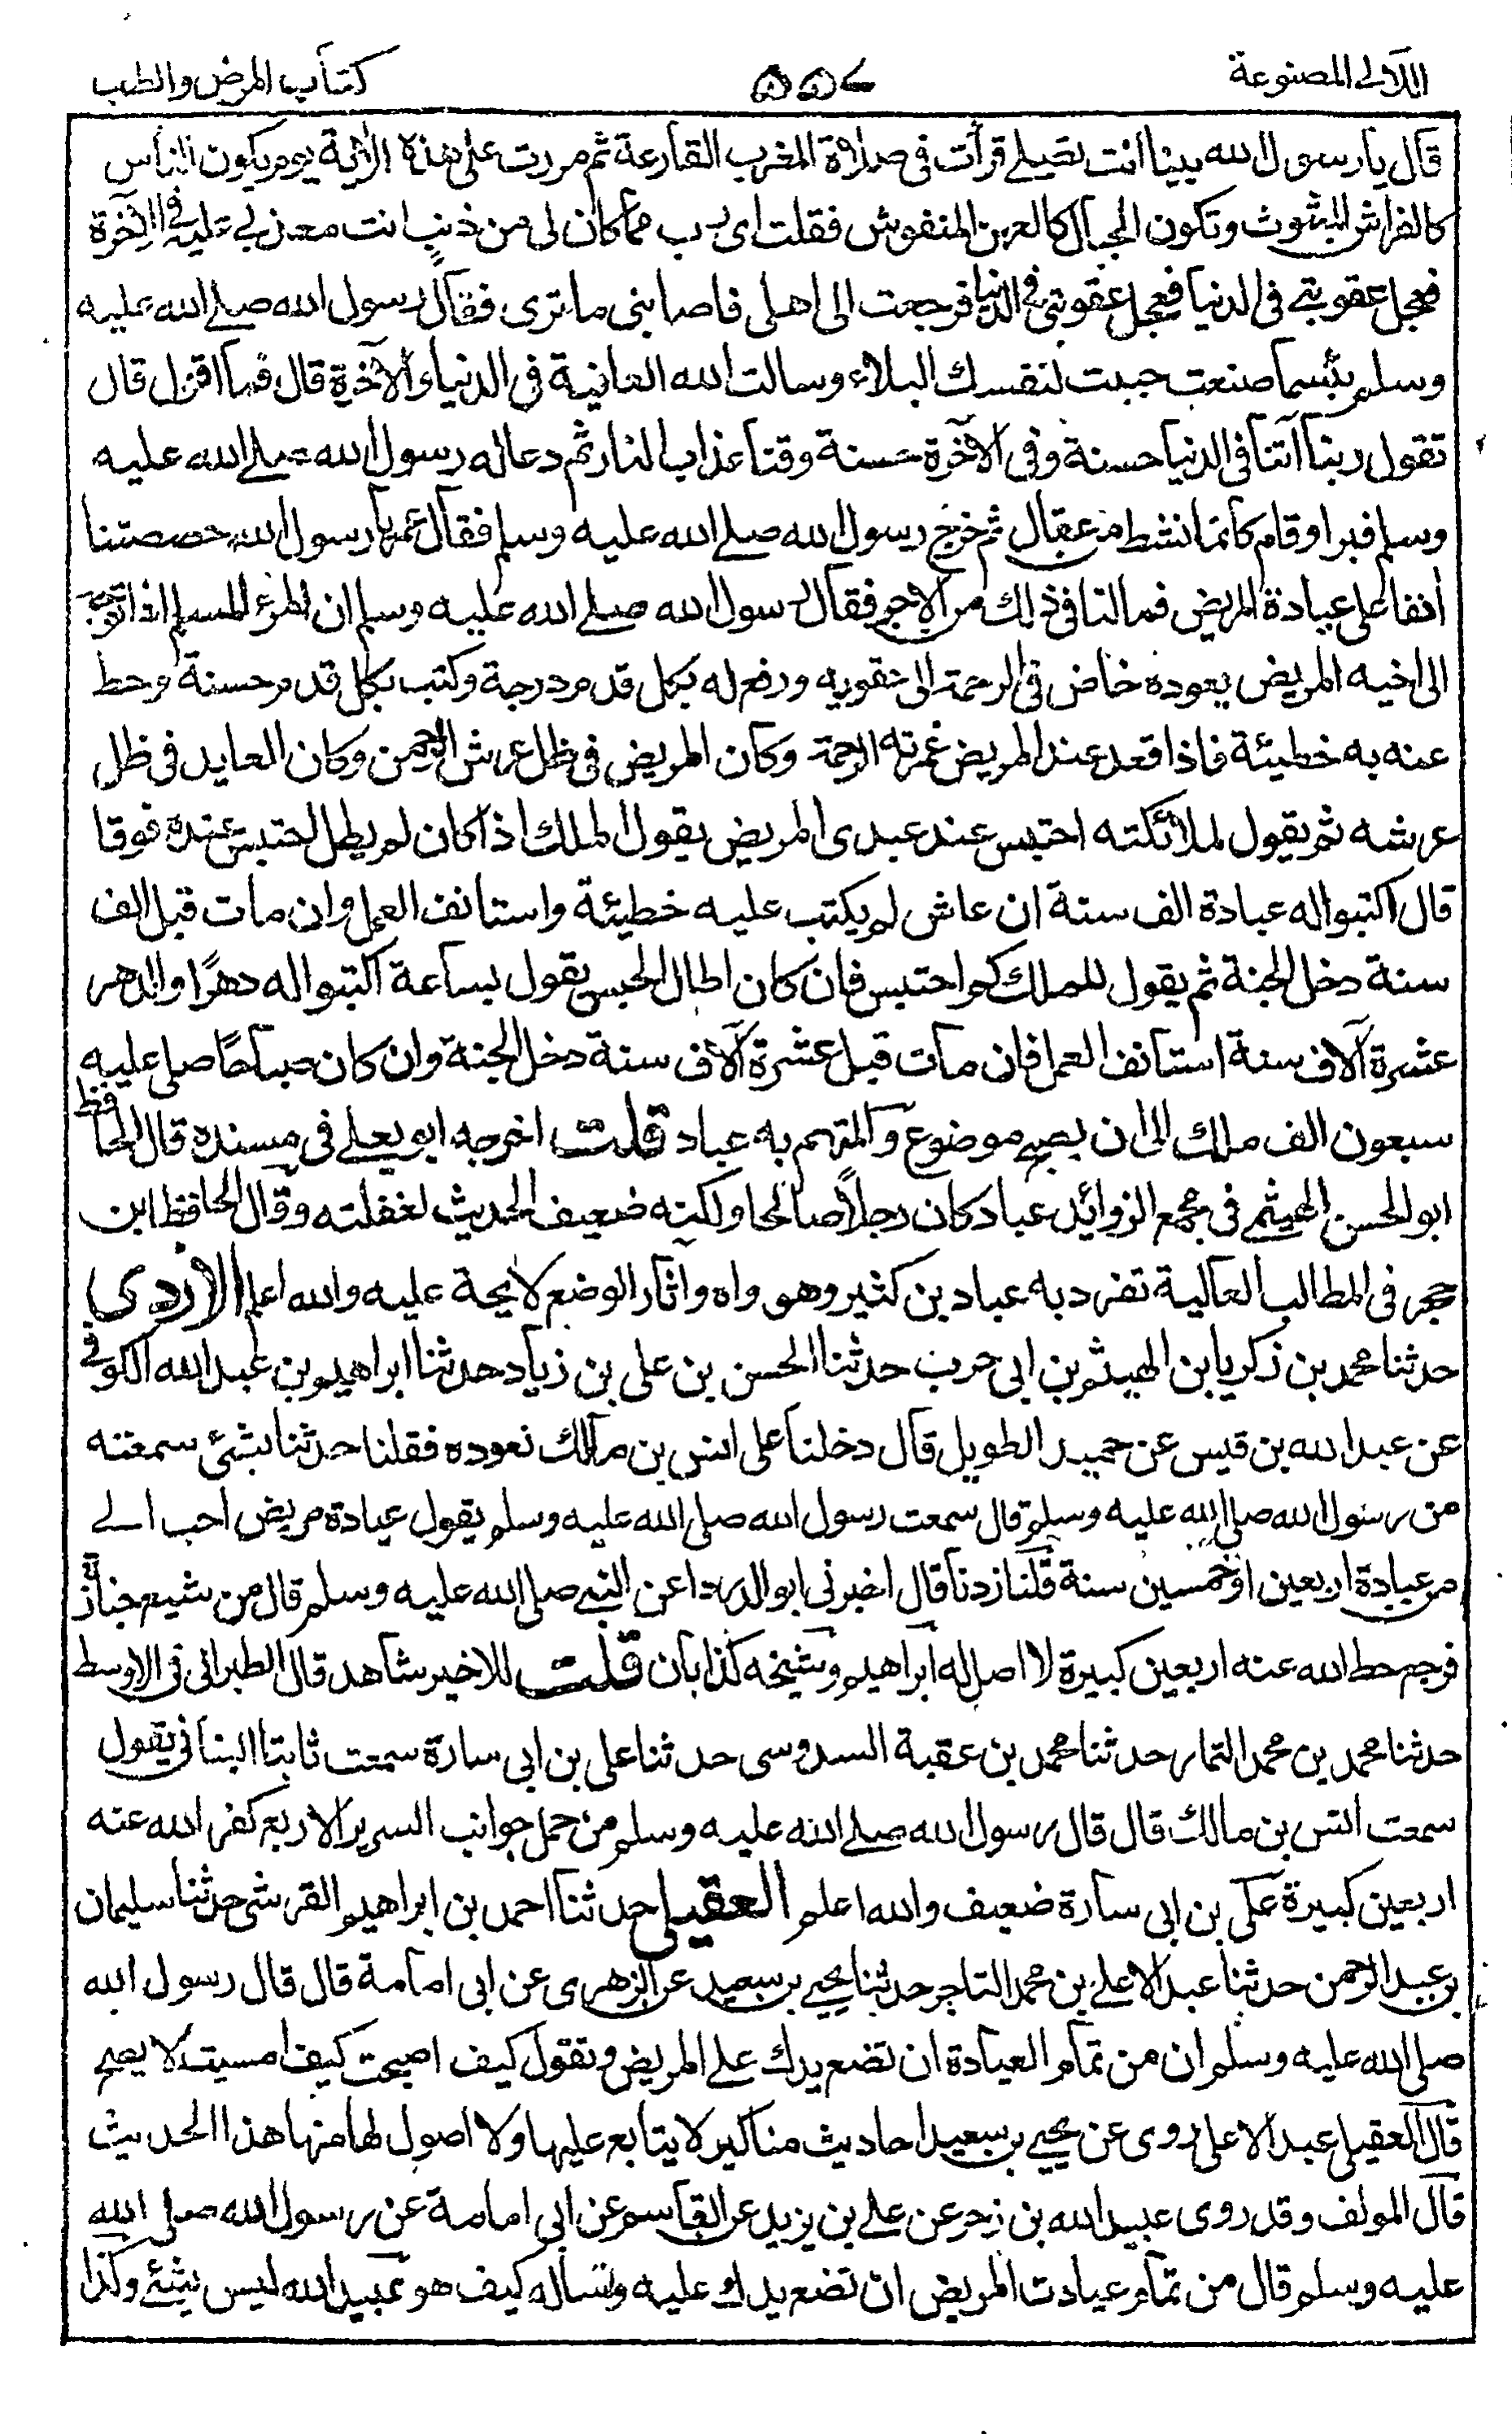 اللآلى المصنوعة
كتاب المرض والطب
قال يا رسول الله بينا انت تصلى قرأت فى صلاة المغرب القارعة ثم مررت على هذه الآية يوم يكون الناس
كالفراش المبثوث وتكون الجبال كالعهن المنفوش فقلت اى رب مما كان لى من ذنب انت معذبى عليه فى الآخرة
فعجل عقوبتى فى الدنيا فعجل عقوبتى فى الدنيا فرجعت الى اهلى فاصابنى ما ترى فقال رسول الله صلى الله عليه
وسلم بئسما صنعت جببت لنفسك البلاء وسالت الله العافية فى الدنيا والآخرة قال فما اقول قال
تقول ربنا آتنا فى الدنيا حسنة وفى الآخرة حسنة وقنا عذاب النار ثم دعا له رسول الله صلى الله عليه
وسلم فبرا وقام كانما نشط من عقال ثم خرج رسول الله صلى الله عليه وسلم فقال عمر يا رسول الله حصصتنا
آنفا على عيادة المريض فما لنا فى ذلك من الاجر فقال رسول الله صلى الله عليه وسلم ان المرء المسلم اذا توجه
الى اخيه المريض يعوده خاض فى الرحمة الى حقويه ورفع له بكل قدم درجة وكتب بكل قدم حسنة وحط
عنه به خطيئة فاذا قعد عند المريض غمرته الرحمة وكان المريض فى ظل عرش الرحمن وكان العايد فى ظل
عرشه ثم يقول لملائكته احتبس عند عبدى المريض يقول الملك اذا كان لم يطل احتبس عنده فوقا
قال اكتبوا له عبادة الف سنة ان عاش لم يكتب عليه خطيئة واستانف العمل وان مات قبل الف
سنة دخل الجنة ثم يقول للملك كم احتبس فان كان اطال الحبس يقول ساعة اكتبوا له دهرًا والدهر
عشرة آلاف سنة استانف العمل فان مات قبل عشرة آلاف سنة دخل الجنة وان كان صباحًا صلى عليه
سبعون الف ملك الى ان يصبح موضوع والمتهم به عباد قلت اخرجه ابو يعلى فى مسنده قال الحافظ
ابو الحسن الهيثمى فى مجمع الزوائد عباد كان رجلاً صالحا ولكنه ضعيف الحديث لغفلته وقال الحافظ ابن
حجر فى المطالب العالية تفرد به عباد بن كثير وهو واه واثار الوضع لايحة عليه والله اعلم الازدى
حدثنا محمد بن زكريا بن الهيثم بن ابى حرب حدثنا الحسن بن على بن زياد حدثنا ابراهيم بن عبد الله الكوفى
عن عبد الله بن قيس عن حميد الطويل قال دخلنا على انس بن مالك نعوده فقلنا حدثنا بشئ سمعته
من رسول الله صلى الله عليه وسلم قال سمعت رسول الله صلى الله عليه وسلم يقول عيادة مريض احب الى
من عبادة اربعين او خمسين سنة قلنا زدنا قال اخبرنى ابو الدردا عن النبى صلى الله عليه وسلم قال من شيع جنازة
فرجع حط الله عنه اربعين كبيرة لا اصل له ابراهيم وشيخه كذابان قلت للاخير شاهد قال الطبرانى فى الاوسط
حدثنا محمد بن محمد التمار حدثنا محمد بن عقبة السدوسى حدثنا على بن ابى سارة سمعت ثابتا البنانى يقول
سمعت انس بن مالك قال قال رسول الله صلى الله عليه وسلم من حمل جوانب السرير الاربع كفر الله عنه
اربعين كبيرة على بن ابى سارة ضعيف والله اعلم العقيلى حدثنا احمد بن ابراهيم القرشى حدثنا سليمان
بن عبد الرحمن حدثنا عبد الاعلى بن محمد التاجر حدثنا يحيى بن سعيد عن الزهرى عن ابى امامة قال قال رسول الله
صلى الله عليه وسلم ان من تمام العيادة ان تضع يدك على المريض وتقول كيف اصبحت كيف امسيت لا يصح
قال العقيلى عبد الاعلى روى عن يحيى بن سعيد احاديث مناكير لا يتابع عليها ولا اصول لها منها هذا الحديث
قال المولف وقد روى عبيد الله بن زحر عن على بن يزيد عن القاسم عن ابى امامة عن رسول الله صلى الله
عليه وسلم قال من تمام عيادت المريض ان تضع يدك عليه وتساله كيف هو عبيد الله ليس بشئ وكذا